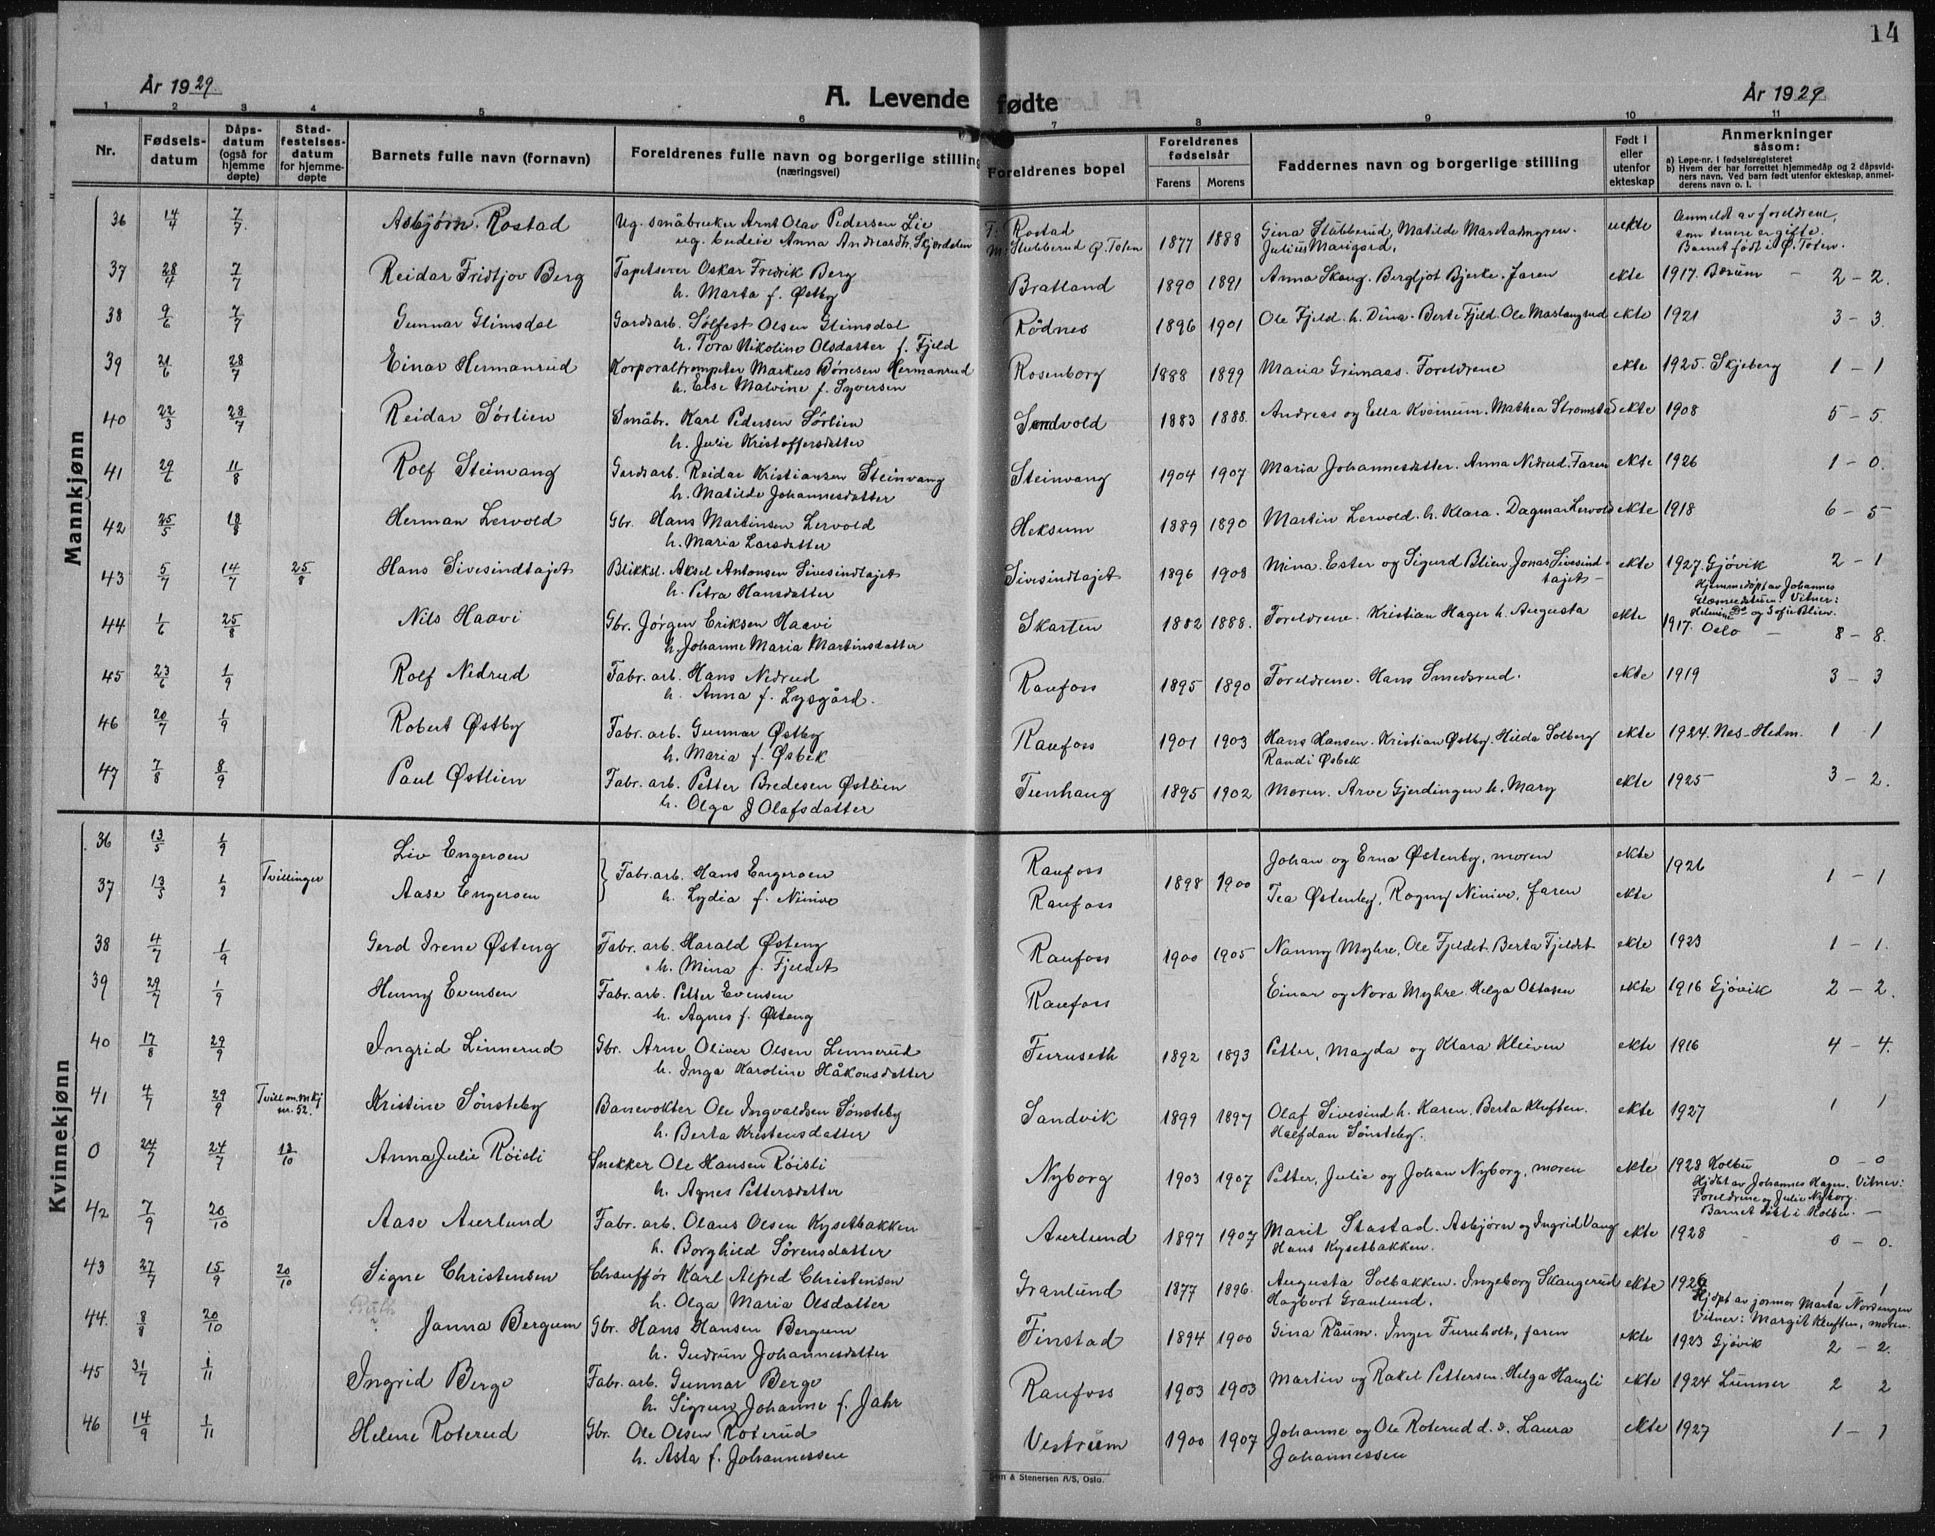 14
År 1929
A. Levende fødte
År 1929
1 2 3 4 5 6 7 8 9 10 11
Nr.
Fødsels-
datum
Dåps-
datum
(også for
hjemme
døpte)
Stad-
festelses-
datum
for hjemme-
døpte
Barnets fulle navn (fornavn)
Foreldrenes fulle navn og borgerlige stilling
(næringsvei)
Foreldrenes bopel
Foreldrenes
fødselsår
Farens Morens
Faddernes navn og borgerlige stilling
Født i
eller
utenfor
ekteskap
Anmerkninger
såsom:
a) Løpe-nr. i fødselsregisteret
b) Hvem der har forrettet hjemmedåp og 2 dåpsvid-
ners navn. Ved barn født utenfor ekteskap, anmel-
derens navn o. l.
Mannkjønn
36 14/4 7/7 Asbjørn Rostad Ug. småbruker Arnt Olav Pedersen Lie F. Rostad 1877 1888 Gina Stubberud, Matilde uekte Anmeldt av foreldrene,
ug. budeie Anna Andreasdtr. Skjerdalen M. Stubberud Ø. Toten Julius som senere er gifte.
Barnet født i Ø. Toten.
37 28/4 7/7 Reidar Fridtjov Berg Tapetserer Oskar Fredrik Berg Bratland 1890 1891 Anna Skaug. Bergljot Bjerke. Faren ekte 1917. Bærum 2 – 2.
h. Marta f. Østby
38 9/6 7/7 Gunnar Glimsdal Gardsarb. Sølfest Olsen Glimsdal Rødnes 1896 1901 Ole Fjeld. h. Dina. Berte Fjeld. Ole Mastangrud ekte 1921 3 – 3.
h. Tora Nikoline Olsdatter f. Fjeld
39 21/6 28/7 Einar Hermanrud Korporaltrompeter Markus Børresen Hermanrud Rosenborg 1888 1899 Maria Grimaas. Foreldrene ekte 1925. Skjeberg 1 – 1
h. Else Malvine f. Syversen
40 22/3 28/7 Reidar Sørlien Småbr. Karl Pedersen Sørlien Sandvold 1883 1888. Andreas og Ella Kvernum. Mathea Strømstad ekte 1908 5 – 5.
h. Julie Kristoffersdatter
41 29/6 11/8 Rolf Steinvang Gardsarb. Reidar Kristiansen Steinvang Steinvang 1904 1907 Maria Johannesdatter. Anna Nedrud. Faren ekte 1926 1 – 0.
h. Matilde Johannesdatter
42 25/5 18/8 Herman Lervold Gbr. Hans Martinsen Lervold Heksum 1889 1890 Martin Lervold. h. Klara. Dagmar Lervold ekte 1918 6 – 5
h. Maria Larsdatter
43 5/7 14/7 25/8 Hans Sivesindtajet Blikksl. Aksel Antonsen Sivesindtajet Sivesindtajet 1896 1908 Mina. Ester og Sigurd Blien Jonas Sivesind- ekte 1927. Gjøvik 2 – 1
h. Petra Hansdatter tajet – Hjemmedøpt av Johannes
Vitner:
og Sofie Blien.
44 1/6 25/8 Nils Haavi Gbr. Jørgen Eriksen Haavi Skarten 1882 1888. Foreldrene. Kristian Hager h. Augusta ekte 1917. Oslo – 8 – 8.
h. Johanne Maria Martinsdatter
45 23/6 1/9 Rolf Nedrud Fabr. arb. Hans Nedrud Raufoss 1895 1890 Foreldrene. Hans Smedsrud. ekte 1919 3 – 3
h. Anna f. Lysgård.
46 20/7 1/9 Robert Østby Fabr. arb. Gunnar Østby Raufoss 1901 1903 Hans Hansen. Kristian Østby. Hilda Solberg ekte 1924. Nes-Hedm. 1 – 1
h. Maria f. Øsbek Randi Øsbek
47 7/8 8/9 Paul Østlien Fabr. arb. Petter Bredesen Østlien Tunhaug 1895 1902 Moren. Arve Gjerdingen h. Mary ekte 1925 3 – 2.
h. Olga J Olafsdatter
Kvinnekjønn
36 13/5 1/9 Liv Engeroen Raufoss Johan og Erna Østenby, moren ekte
Tvillinger Fabr. arb. Hans Engeroen 1898 1900 1926 1 – 1
37 13/5 1/9 Aase Engeroen h. Lydia f. Ninive Raufoss Tea Østenby, Ragny Ninive, faren ekte
38 4/7 1/9 Gerd Irene Østeng Fabr. arb. Harald Østeng Raufoss 1900 1905 Nanny Myhre, Ole Fjeldet. Berta Fjeldet ekte 1923 1 – 1.
h. Mina f. Fjeldet
39 29/7 1/9 Henny Evensen Fabr. arb. Petter Evensen Raufoss Einar og Nora Myhre. Helga Ottosen ekte 1916 Gjøvik 2 – 2.
h. Agnes f. Østeng
40 17/8 29/9 Ingrid Linnerud Gbr. Arne Oliver Olsen Linnerud Furuseth 1892 1893 Petter, Magda og Klara Kleiven ekte 1916 4 – 4.
h. Inga Karoline Håkonsdatter
41 4/7 29/9 Tvill. m. mkj nr. 52. Kristine Sønsteby Banevokter Ole Ingvaldsen Sønsteby Sandvik 1899 1897 Olaf Sivesind h. Karen, Berta Kluften. ekte 1927 1 1
h. Berta Kristensdatter Halfdan Sønsteby.
0 24/7 24/7 13/10 Anna Julie Røisli Snekker Ole Hansen Røisli Nyborg 1903 1907 Petter, Julie og Johan Nyborg, moren ekte 1928 Kolbu 0 – 0
h. Agnes Pettersdatter Hjdøt av Johannes Hagen. Vitner:
Foreldrene og Julie Nyborg.
Barnet født i Kolbu. –
42 7/9 20/10 Aase Aurlund Fabr. arb. Olaus Olsen Kysetbakken Aurlund 1897 1907 Marit Stastad. Asbjørn og Ingrid Vang ekte 1928 0 – 0.
h. Borghild Sørensdatter Hans Kysetbakken.
43 27/7 15/9 20/10 Signe Christensen Chauffør Karl Alfred Christensen Granlund 1877 1896. Augusta Solbakken. Ingeborg Skangerud ekte 1926 1 1
h. Olga Maria Olsdatter Hagbart Granlund. Hjdøpt av jormor Marta Nordengen
Vitner: Margit Kluften, moren.
44. 8/8 20/10 Ruth Janna Bergum Gbr. Hans Hansen Bergum Finstad 1894 1900 Gina Raum. Inger Furuholt, faren ekte 1923 Gjøvik 2 – 2.
h. Gudrun Johannesdatter
45 31/7 1/11 Ingrid Berge Fabr. arb. Gunnar Berge Raufoss 1903 1903 Martin og Rakel Pettersen. Helga Haugli ekte 1924 Lunner 2 2
h. Sigrun Johanne f. Jahr
46 14/9 1/11 Helene Roterud Gbr. Ole Olsen Roterud Vestrum 1900 1907 Johanne og Ole Roterud d. s. Laura ekte 1927 1 – 1
h. Asta f. Johannessen Johannessen
& Stenersen A/S, Oslo.